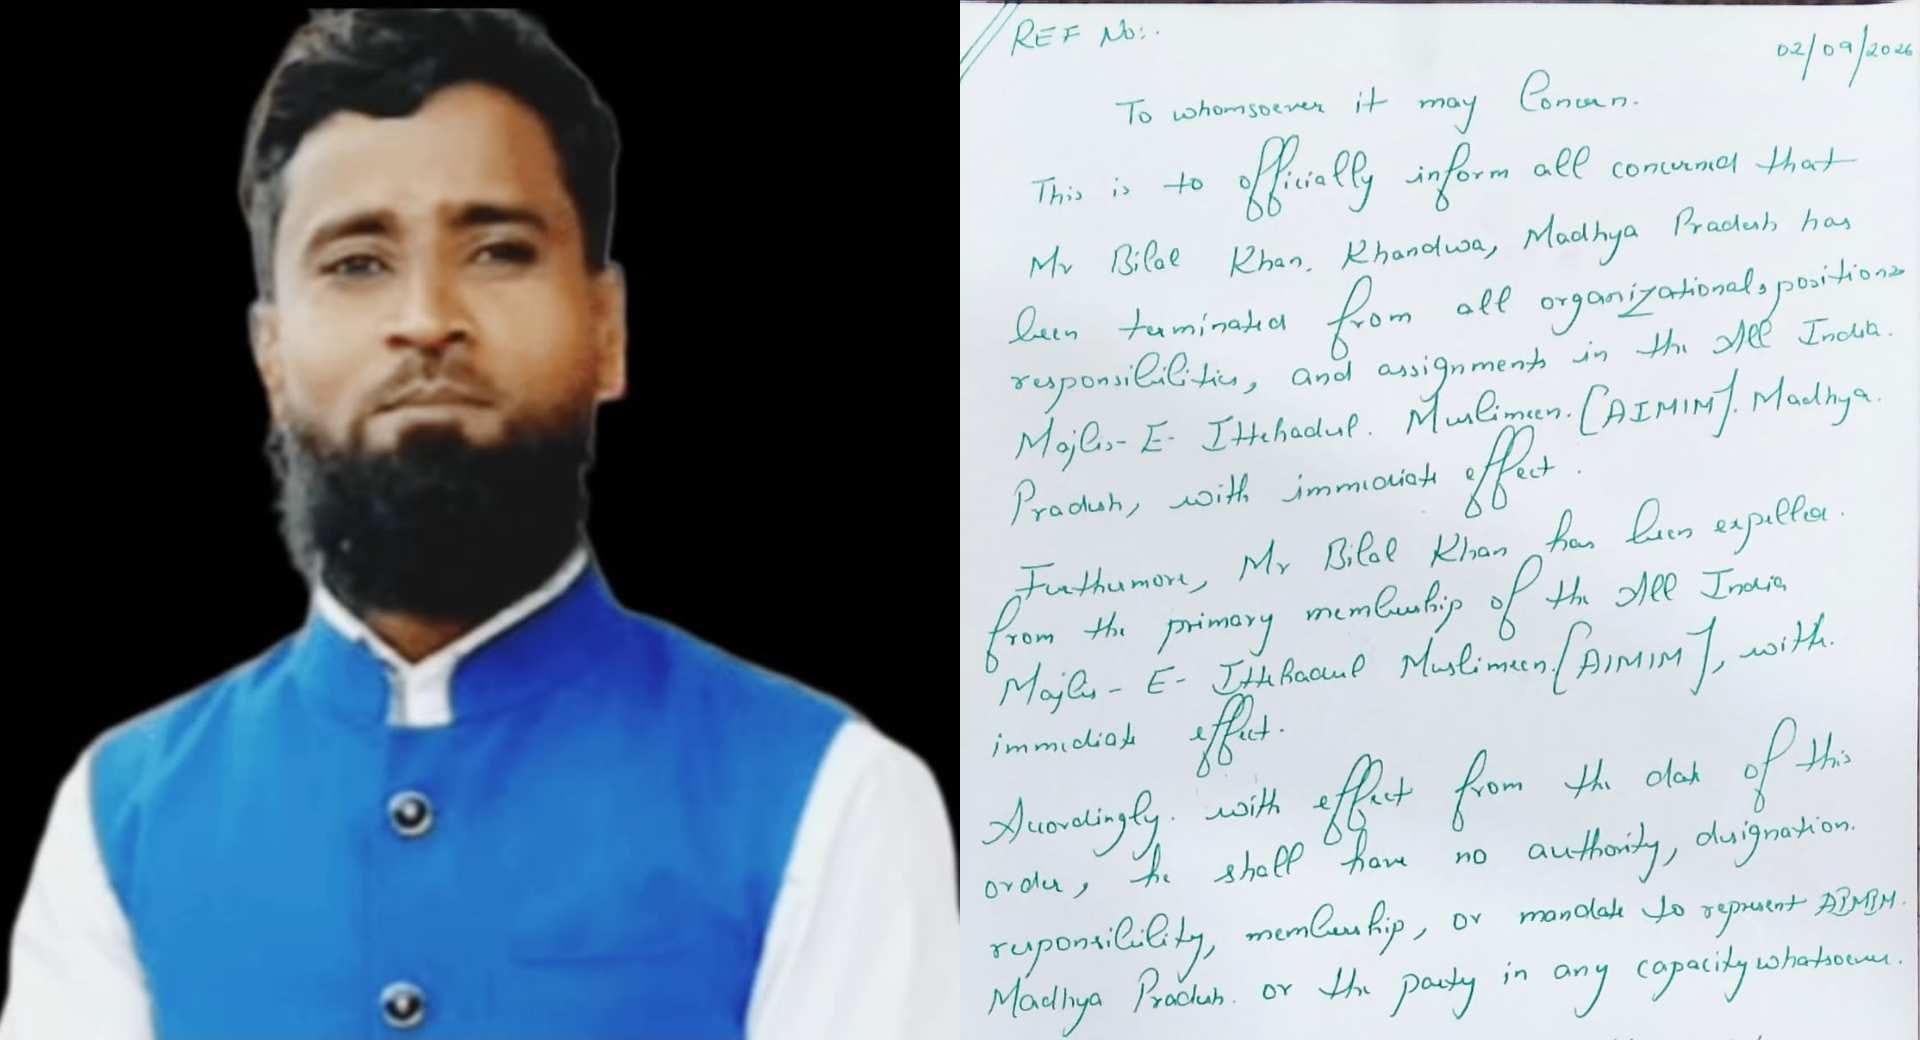 REF No:.
02/09/2026
To whomsoever it may Concern.
This is to officially inform all concerned that
Mr Bilal Khan. Khandwa, Madhya Pradesh has
been terminated from all organizational, positions
responsibilities, and assignments in the All India.
Majlis-E-Ittehadul. Muslimeen. [AIMIM]. Madhya.
Pradesh, with immediate effect.
Furthermore, Mr Bilal Khan has been expelled.
from the primary membership of the All India
Majlis-E-Ittehadul Muslimeen. [AIMIM], with.
immediate effect.
Accordingly. with effect from the date of this
order, he shall have no authority, designation.
responsibility, membership, or mandate to represent AIMIM.
Madhya Pradesh. or the party in any capacity whatsoever.